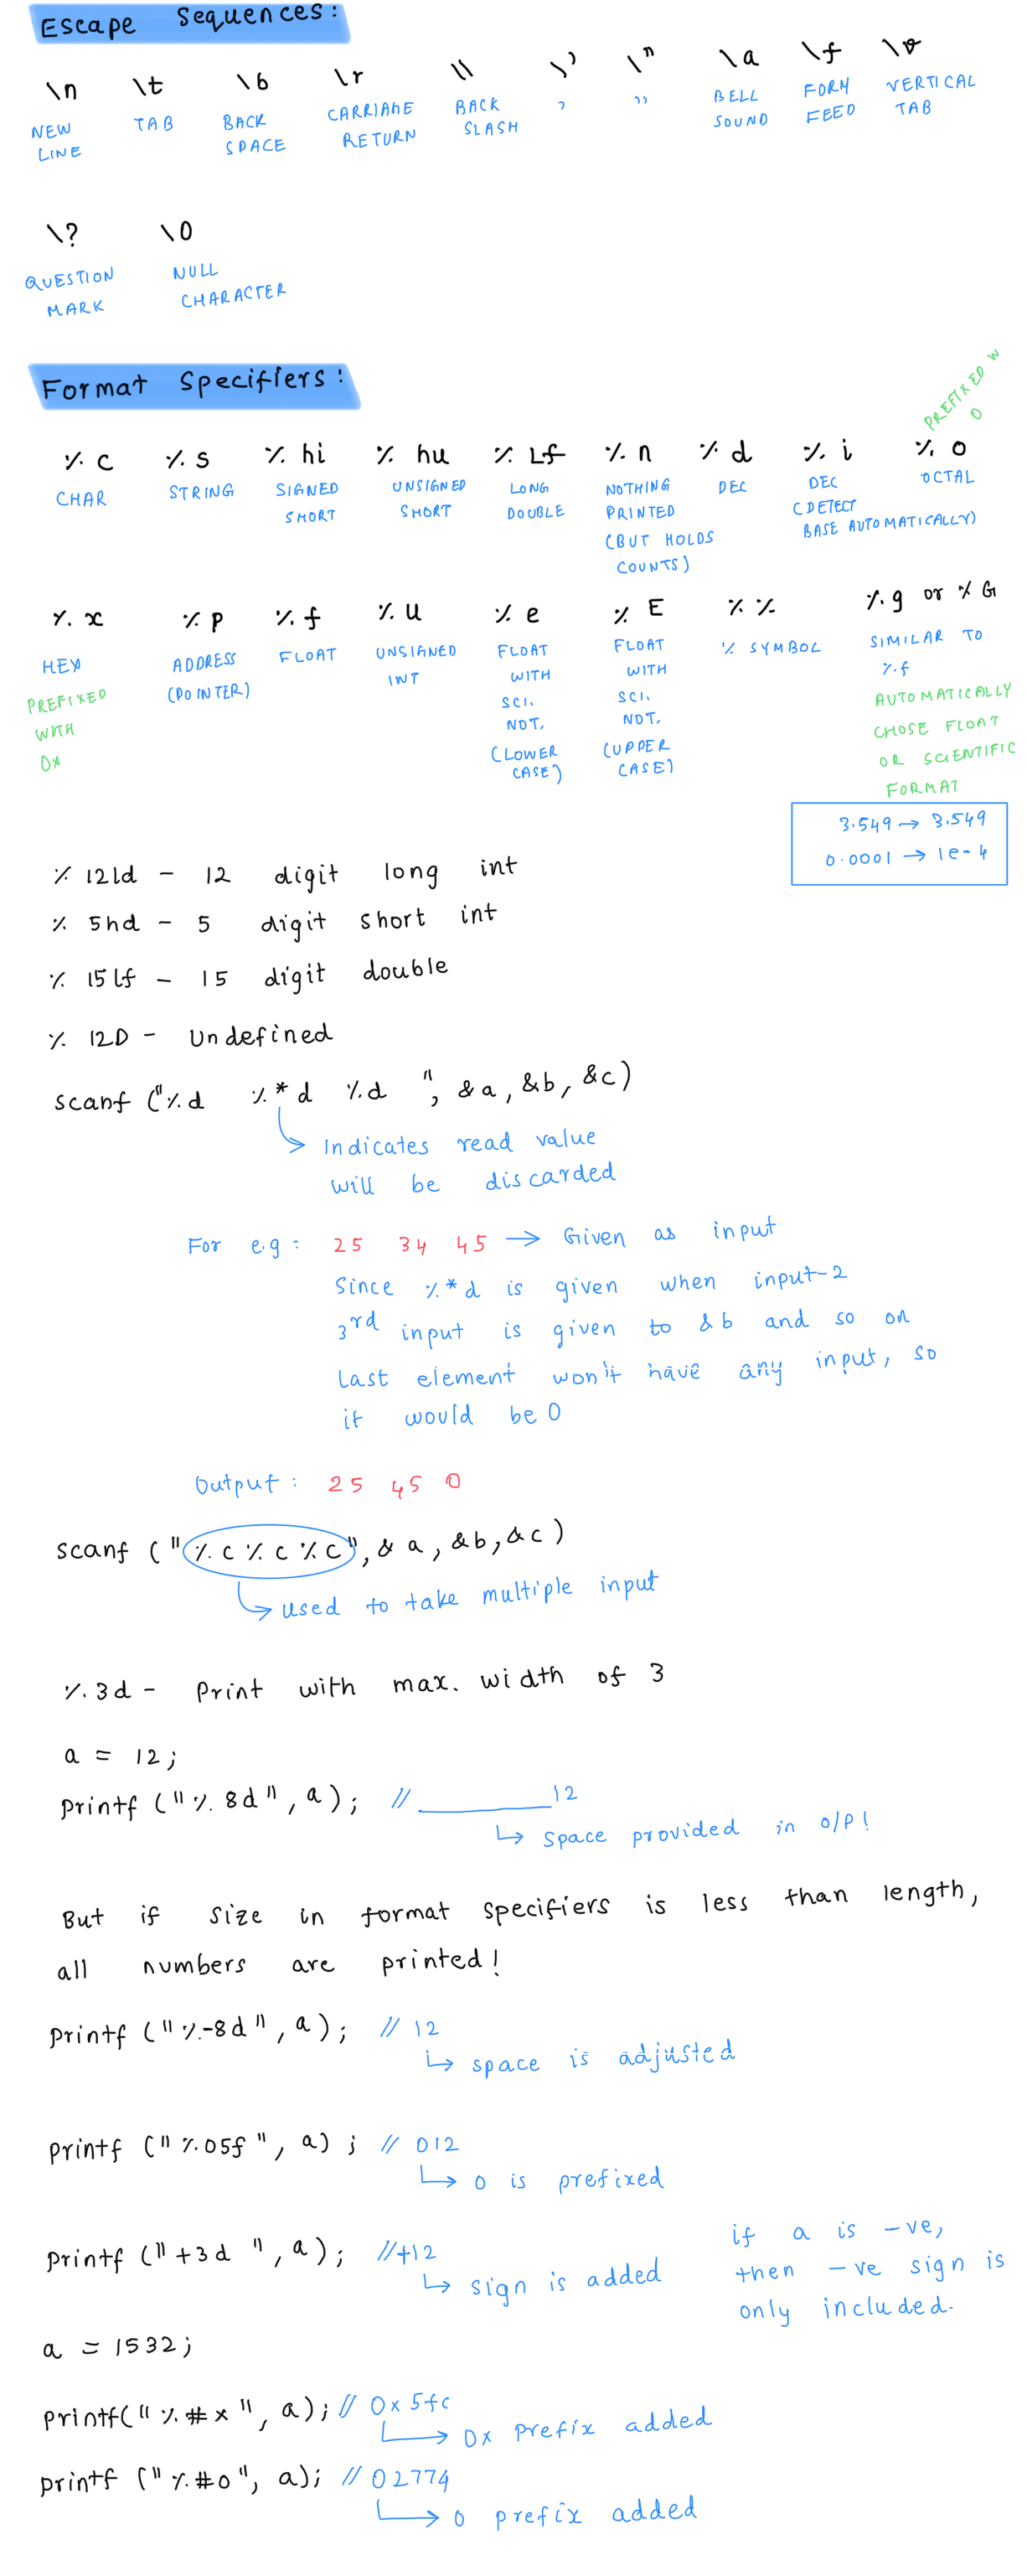 Escape Sequences:
\n \t \b \r \\ \' \" \a \f \v
NEW LINE TAB BACK SPACE CARRIAGE RETURN BACK SLASH ' " BELL SOUND FORM FEED VERTICAL TAB
\? \0
QUESTION MARK NULL CHARACTER
Format Specifiers:
PREFIXED W 0
%c %s %hi %hu %Lf %n %d %i %o
CHAR STRING SIGNED SHORT UNSIGNED SHORT LONG DOUBLE NOTHING PRINTED (BUT HOLDS COUNTS) DEC DEC (DETECT BASE AUTOMATICALLY) OCTAL
%x %p %f %u %e %E %% %g or %G
HEX PREFIXED WITH 0x ADDRESS (POINTER) FLOAT UNSIGNED INT FLOAT WITH SCI. NOT. (LOWER CASE) FLOAT WITH SCI. NOT. (UPPER CASE) % SYMBOL SIMILAR TO %f AUTOMATICALLY CHOSE FLOAT OR SCIENTIFIC FORMAT
3.549 → 3.549
0.0001 → 1e-4
% 12ld - 12 digit long int
% 5hd - 5 digit short int
% 15lf - 15 digit double
% 12D - Undefined
scanf ("%d %*d %d ", &a, &b, &c)
Indicates read value
will be discarded
For e.g: 25 34 45 → Given as input
Since %*d is given when input-2
3rd input is given to &b and so on
Last element won't have any input, so
it would be 0
Output: 25 45 0
scanf ("%c%c%c", &a, &b, &c)
used to take multiple input
%3d - Print with max. width of 3
a = 12;
printf ("%8d", a); // ________12
space provided in O/P!
But if size in format specifiers is less than length,
all numbers are printed!
printf ("%-8d", a); // 12
space is adjusted
printf ("%05f", a); // 012
0 is prefixed
printf ("+3d ", a); //+12
sign is added
if a is -ve,
then -ve sign is
only included.
a = 1532;
printf("%#x", a); // 0x5fc
0x prefix added
printf ("%#o", a); // 02774
0 prefix added